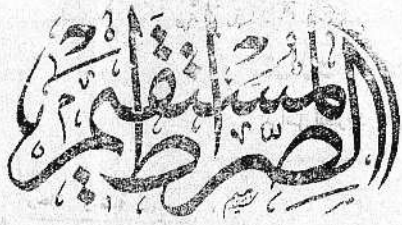 الصِّرٰطَ المُسْتَقِيْمَ